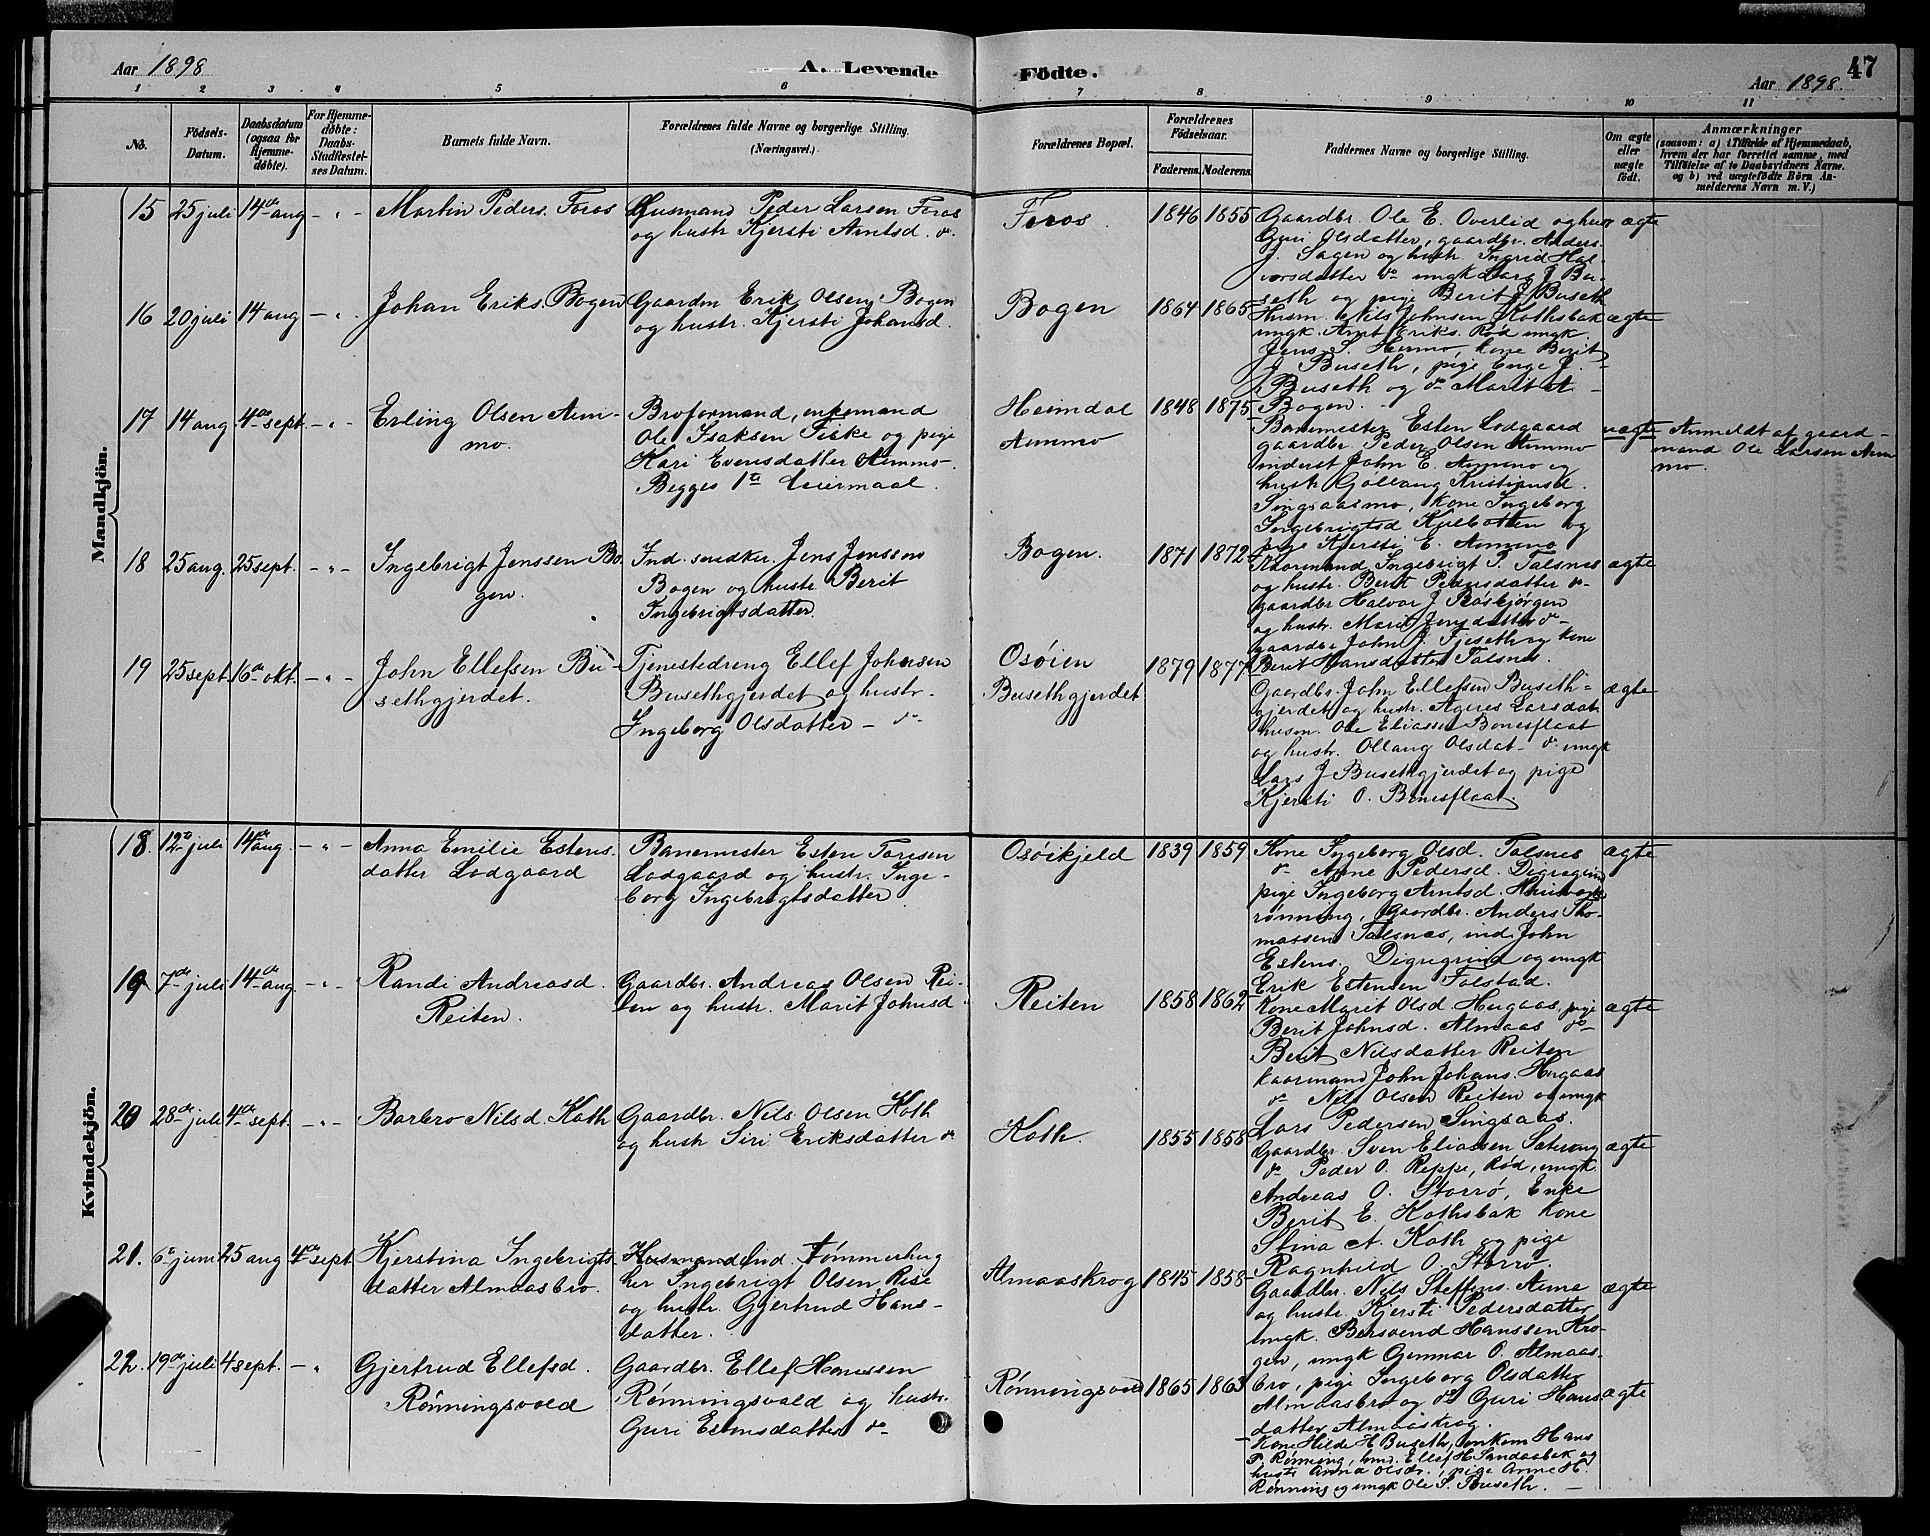 Aar 1898
A. Levende
Födte.
Aar 1898.
47
1 2 3 4 5 6 7 8 9 10 11
No.
Födsels-
Datum.
Daabsdatum
(ogsaa for
Hjemme-
döbte).
For Hjemme-
döbte:
Daabs-
Stadfæstel-
ses Datum.
Barnets fulde Navn.
Forældrenes fulde Navne og borgerlige Stilling.
(Næringsvei.)
Forældrenes Bopæl.
Forældrenes
Födselsaar.
Faderens. Moderens.
Faddernes Navne og borgerlige Stilling.
Om ægte
eller
uægte
født.
Anmærkninger
(saasom: a) i Tilfælde af Hjemmedaab,
hvem der har forrettet samme, med
Tilföielse af to Daabsvidners Navne.
og b) ved uægtefödte Börn An-
melderens Navn m. V.)
Mandkjön.
15 25 juli 14de aug - " - Martin Peders. Foros
Husmand Peder Larsen Foros
og hustr Kjersti Arntsd. do
Foros 1846 1855
Gaardbr. Ole E. Overlid og hustr
Guri Olsdatter, gaardbr. Anders
J. Sagen og hustr. Ingrid Hal-
vorsdatter do ungk Lars J Bu-
seth og pige Berit J Buseth
ægte
16 20 juli 14 aug - " - Johan Eriks. Bogen
Gaardm Erik Olsen Bogen
og hustr. Kjersti Johansd.
Bogen 1864 1865
Husm. Nils Johnsen Kothsbak
ungk. Arnt Eriks. Rød ungk
Jens S. Hemmo, kone Berit
J Buseth, pige Enge J. -
Buseth og do Marit A -
Bogen.
ægte
17 14 aug 4de sept. - " - Erling Olsen Aım-
mo.
Broformand, enkemand
Ole Isaksen Fiske og pige
Kari Evensdatter Ammo.
Begges 1ste leiermaal.
Heimdal
Ammo
1848 1875
Banemester Esten Lodgaard
gaardbr Peder Olsen Ammo
inderst John E. Ammo og
hustr Gollaug Kristiansd.
Singsaasmo, kone Ingeborg
Ingebrigtsd Kulbotten og
pige Kjersti E. Ammo
uægte
Anmeldt af gaard-
mand Ole Larsen Am
mo.
18 25 aug. 25 sept. - " - Ingebrigt Jenssen Bo
gen.
Ind. snedker. Jens Jenssen
Bogen og hustr Berit
Ingebrigtsdatter
Bogen. 1871 1872
Kaarmand Ingebrigt P. Talsnes
og hustr. Berit Pedersdatter do
gaardbr Halvor J Rosbjørgen
og hustr. Marit Jensdatter do
gaardbr John J. Fjeseth og kone
Berit Hansdatter Talsnes.
ægte
19 25 sept. 16de okt. - " - John Ellefsen Bu-
sethgjerdet.
Tjenestedreng Ellef Johnsen
Busethgjerdet og hustr.
Ingeborg Olsdatter - do
Osöien
Busethgjerdet
1879 1877
Gaardbr. John Ellefsen Buseth-
gjerdet og hustr. Agnes Larsdat
husm. Ole Eliassen Bonesflaat
og hustr. Ollaug Olsdat - do ungk
Lars J Busethgjerdet og pige
Kjersti O. Bonesflaat.
ægte
Kvindekjön.
18. 12te juli 14de aug. - " - Anna Emilie Estens.
datter Lodgaard
Banemester Esten Toresen
Lodgaard og hustr. Inge-
borg Ingebrigtsdatter
Osöikjeld 1839 1859
Kone Ingeborg Olsd. Talsnes
do Anne Pedersd. Digregrind
pige Ingeborg Arntsd.
rönning, Gaardbr. Anders Tho-
massen Talsnæs, ind John
Estens. Digregrind og ungk
Erik Estensen Folstad.
ægte
19 7de juli 14de aug. - " - Randi Andreasd.
Reiten.
Gaardbr. Andreas Olsen Rei-
ten og hustr. Marit Johnsd.
Reiten 1858 1862
Kone Marit Olsd Hugaas, pige
Berit Johnsd. Almaas do
Berit Nilsdatter Reiten
kaarmand John Johans. Hugaas
do Nils Olsen Reiten og ungk
Lars Pedersen Singsaas.
ægte
20 28de juli 4de sept. - " - Barbro Nilsd. Koth
Gaardbr. Nils Olsen Koth
og hustr Siri Eriksdatter do
Koth. 1855 1858
Gaardbr. Sven Eliassen
do Peder O. Reppe, Rød, ungk.
Andreas O. Storrø, Enke
Berit E. Kothsbak kone
Stina A. Koth og pige
Ragnhild O. Storrø.
ægte
21. 6te juni 25 aug 4de sept Kjerstina Ingebrigts
datter Almaasbro.
Husmand Ind. Tømmerhug
ber Ingebrigt Olsen Rise
og hustr. Gjertrud Hans-
datter.
Almaaskrog 1845 1858
Gaardbr. Nils Steffens. Aune
og hustr. Kjersti Pedersdatter
ungk. Bersvend Hanssen Kro-
gen, ungk Gunnar O. Almaas-
bro, pige Ingeborg Olsdatter
Almaasbro og do Guri Hans
datter Almaaskrog.
ægte
22. 19de juli 4 sept. - " Gjertrud Ellefsd.
Rønningsvold
Gaardbr. Ellef Hanssen
Rønningsvald og hustr.
Guri Estensdatter do
Rønningsvold 1865 1863
Kone Hilde H Buseth, enkem Hans
P. Rønning, hm. Ellef H. Sandaabak og
hustr Anna Olsdr., pige Anne H.
Rønning og ungk Ole S. Buseth. -
ægte